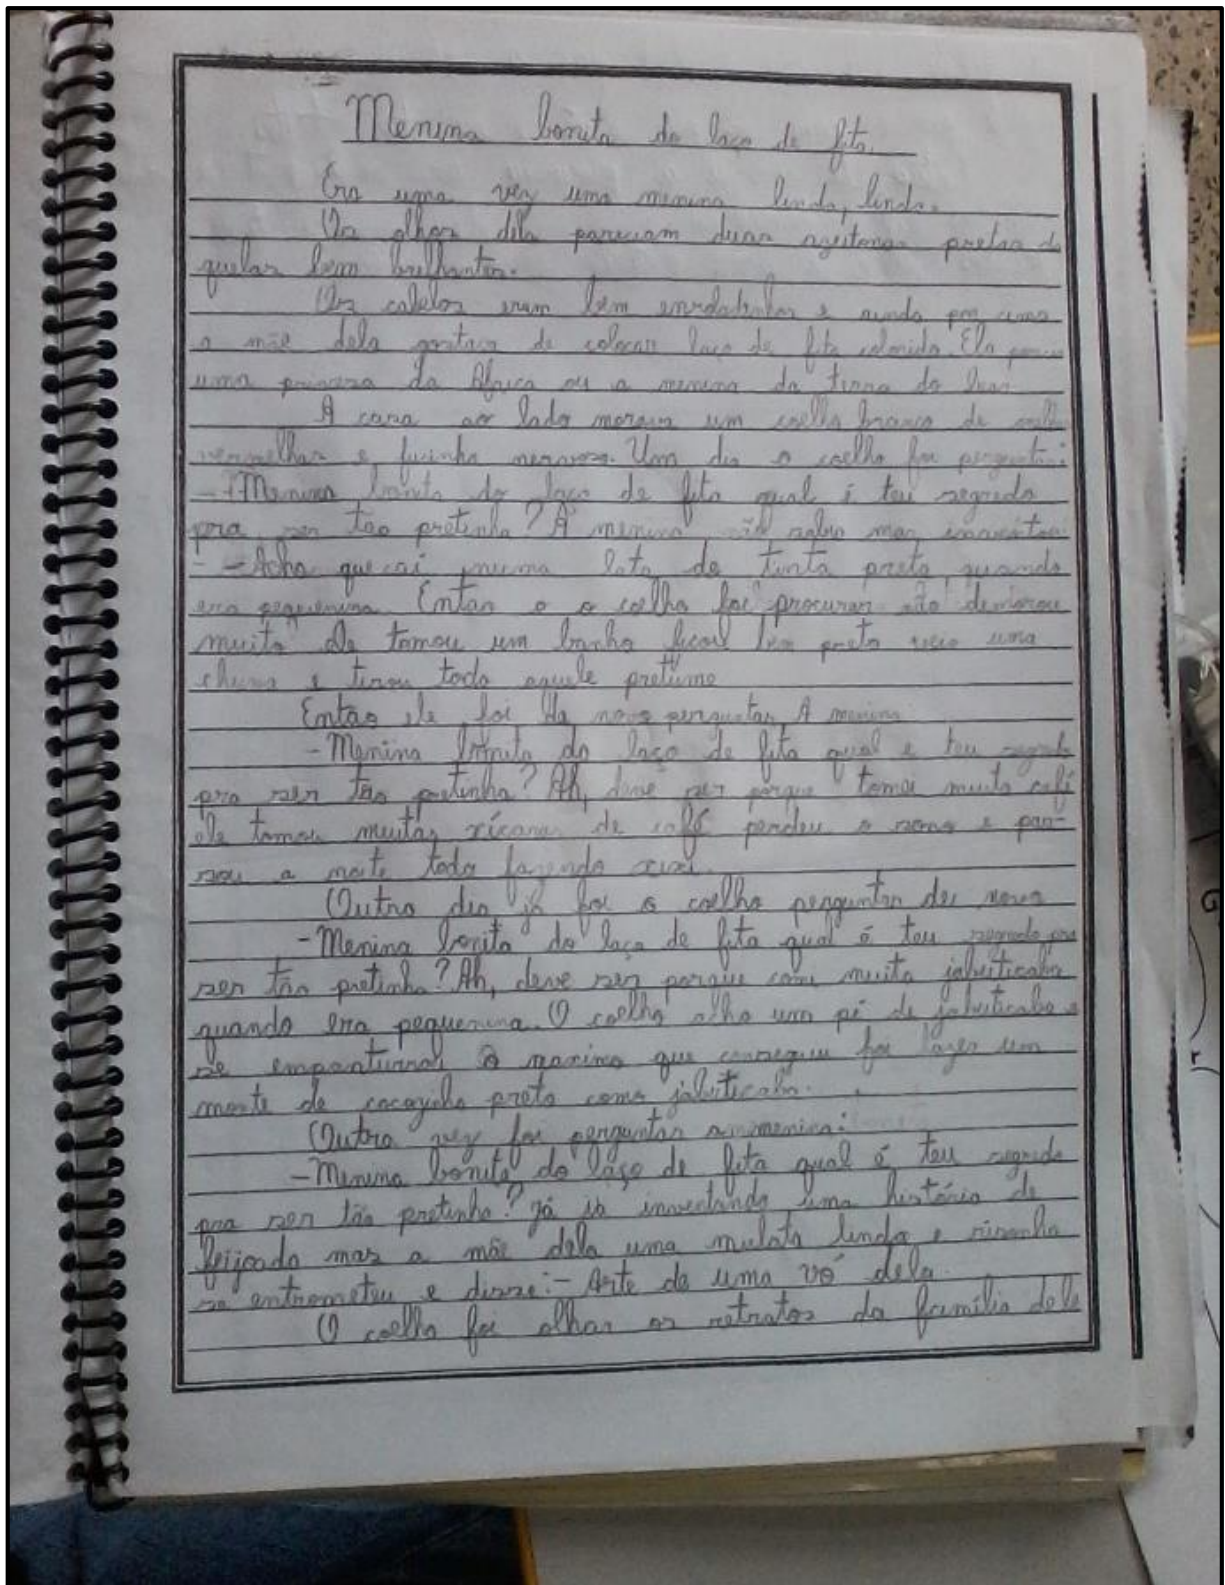 Menina bonita do laço de fita.
Era uma vez uma menina linda, linda.
Os olhos dela pareciam duas azeitonas pretas da
quelas bem brilhantes.
Os cabelos eram bem enroladinhos e ainda por cima
a mãe dela gostava de colocar laço de fita colorida. Ela
uma princesa da África ou a menina da terra do luar
A casa ao lado morava um coelho branco de
vermelhos e fucinho nervoso. Um dia o coelho foi
- Menina bonita do laço de fita qual é teu segredo
pra ser tão pretinha? A menina não sabia mas
- Acho que cai numa lata de tinta preta quando
era pequenina. Então o o coelho foi procurar não demorou
muito ele tomou um banho ficou bem preto veio uma
chuva e tirou todo aquele pretume
Então ele foi de novo perguntar A menina
- Menina bonita do laço de fita qual e teu segredo
pra ser tão pretinha? Ah, deve ser porque tomei muito café
ele tomou muitas xícaras de café perdeu o sono e pas-
sou a noite toda fazendo xixi.
Outro dia já foi o coelho perguntar de novo
- Menina bonita do laço de fita qual é teu segredo pra
ser tão pretinha? Ah, deve ser porque comi muita jabuticaba
quando era pequenina. O coelho olho um pé de jabuticaba e
se empanturrou o maximo que conseguiu foi fazer um
monte de cocozinho preto como jabuticaba.
Outra vez foi perguntar a menina:
- Menina bonita do laço de fita qual é teu segredo
pra ser tão pretinha? já ia inventando uma história de
feijoada mas a mãe dela uma mulata linda e risonha
se entrometeu e disse: - Arte de uma vó dela.
O coelho foi olhar os retratos da família dele